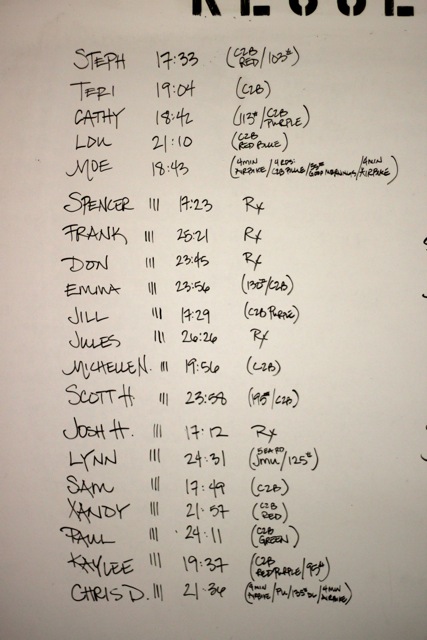 STEPH 17:33 (C2B RED/103#)
TERI 19:04 (C2B)
CATHY 18:42 (113#/C2B PURPLE)
LOU 21:10 (C2B RED BLUE)
MOE 18:43 (4MIN AIRBIKE/4RDS: C2B BLUE/35# GOOD MORNINGS/4MIN AIRBIKE)
SPENCER ||| 17:23 Rx
FRANK ||| 25:21 Rx
DON ||| 23:45 Rx
EMMA ||| 23:56 (130#/C2B)
JILL ||| 17:29 (C2B PURPLE)
JULES ||| 26:26 Rx
MICHELLE N. ||| 19:56 (C2B)
SCOTT H ||| 23:58 (195#/C2B)
JOSH H. ||| 17:12 Rx
LYNN ||| 24:31 (JMU/125#)
SAM ||| 17:49 (C2B)
XANDY ||| 21:57 (C2B RED)
PAUL ||| 24:11 (C2B GREEN)
KAYLEE ||| 19:37 (C2B RED/PURPLE/95#)
CHRIS D. ||| 21:36 (4MIN AIRBIKE/PU/135#/4MIN AIRBIKE)